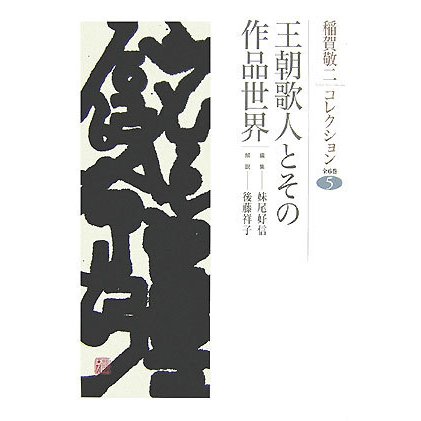 稲賀敬二コレクション 全6巻 5
王朝歌人とその
作品世界
編集――妹尾好信
解説――後藤祥子